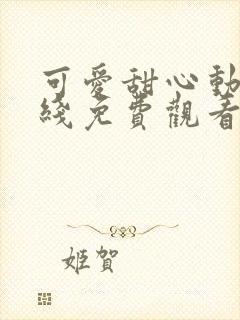 可愛甜心動
綫免費觀看
姬賀